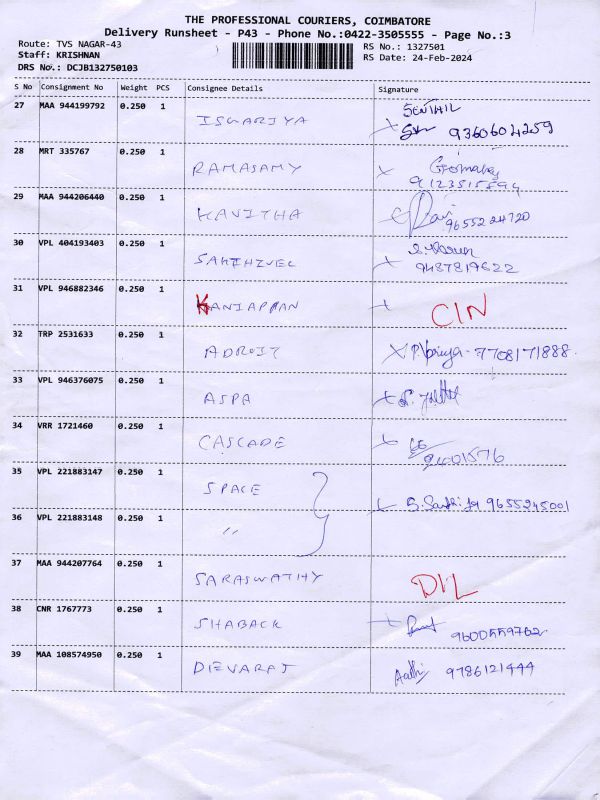 THE PROFESSIONAL COURIERS, COIMBATORE
Delivery Runsheet - P43 - Phone No.:0422-3505555 - Page No.:3
Route: TVS NAGAR-43 RS No.: 1327501
Staff: KRISHNAN RS Date: 24-Feb-2024
DRS No.: DCJB132750103
S No Consignment No Weight PCS Consignee Details Signature
27 MAA 944199792 0.250 1 ISWARIYA SENTHIL 9360604259
28 MRT 335767 0.250 1 RAMASAMY
29 MAA 944206440 0.250 1 KAVITHA 9655224720
30 VPL 404193403 0.250 1 SAKTHIVEL 9487819622
31 VPL 946882346 0.250 1 KANIAPPAN CIN
32 TRP 2531633 0.250 1 ADROIT P. Priya - 7708171888
33 VPL 946376075 0.250 1 ASPA
34 VRR 1721460 0.250 1 CASCADE
35 VPL 221883147 0.250 1 SPACE 9655245001
36 VPL 221883148 0.250 1 〃
37 MAA 944207764 0.250 1 SARASWATHY D/L
38 CNR 1767773 0.250 1 SHABACK 9600559762
39 MAA 108574950 0.250 1 DEVARAJ Aathi 9786121444